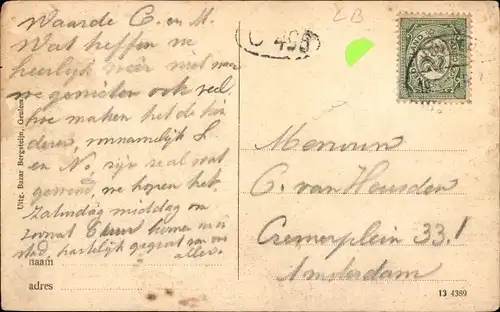 Waarde C. en M.
Wat heffen we
heerlijk weer niet waar
we genieten ook veel
hoe maken het de kin
deren, voornamelijk S
en N. zijn ze al wat
gewend, we hopen het
Zaturdag middag om
6 uur
stad, hartelijk gegroet van ons
allen.
naam
adres
Uitg. Bazar Bergsteijn, Geulem
LB
C 495
NEDERLAND
Mevrouw
C. van Heusden
Cremerplein 33.I
Amsterdam
13 4389